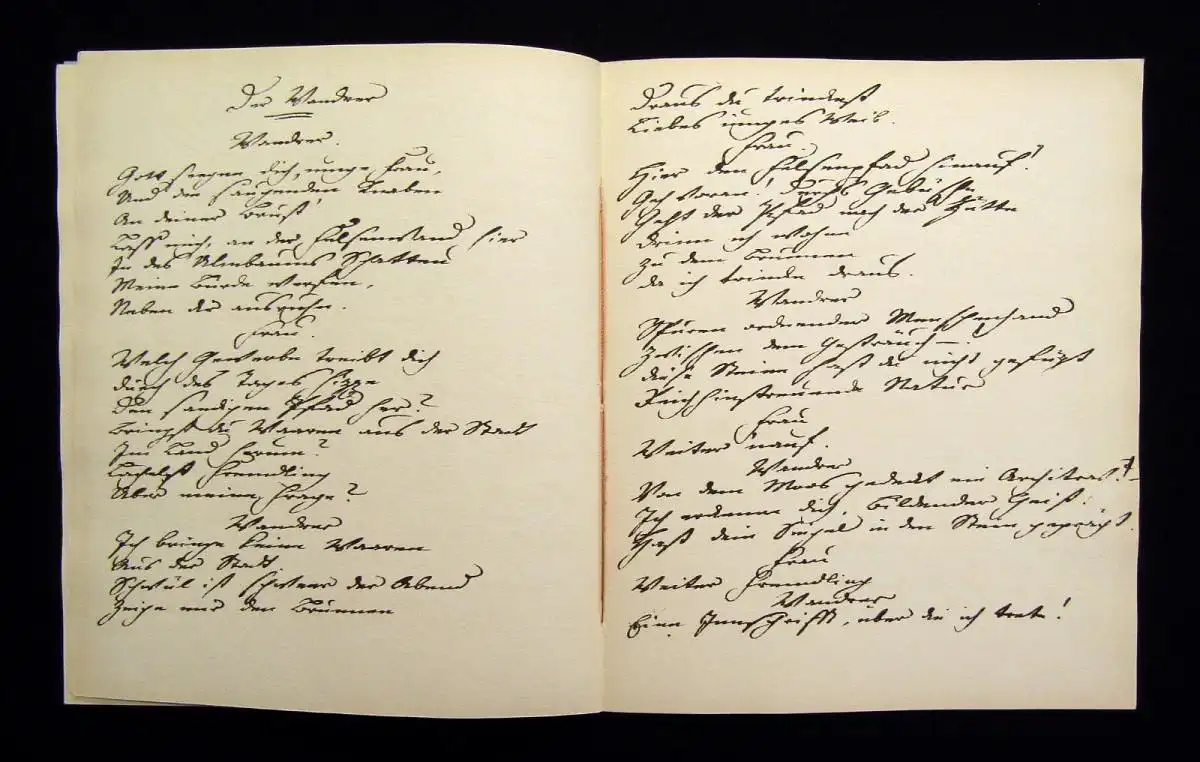 Der Wandrer
Wandrer.
Gott seegne dich, iunge Frau,
Und den saugenden Knaben
An deiner Brust!
Lass mich, an der Felsenwand hier
In des Ulmbaums Schatten
Meine Bürde werfen,
Neben dir ausruhn.
Frau.
Welch Gewerbe treibt dich
Durch des Tages Hizze
Den sandigen Pfad her?
Bringst du Waaren aus der Stadt
Im Land herum?
Lächelst Fremdling
Über meine Frage?
Wandrer
Ich bringe keine Waaren
Aus der Stadt
Schwül ist schweer der Abend
Zeige mir den Brunnen
Draus du trinckest
Liebes iunges Weib.
Frau.
Hier den Felsenpfad hinauf!
Geh voran! Durchs Gebüsche
Geht der Pfad nach der Hütte
Drinn ich wohne
Zu dem Brunnen
Da ich trincke draus.
Wandrer
Spuren ordnender Menschenhand
Zwischen dem Gesträuch!
Diese Steine hast du nicht gefügt
Reichhinstreuende Natur
Frau
Weiter nauf.
Wandrer
Von dem Moos gedeckt ein Architrav!
Ich erkenne dich, bildender Geist!
Hast dein Siegel in den Stein geprägt.
Frau
Weiter Fremdling
Wandrer
Eine Innschrifft, über die ich trete!